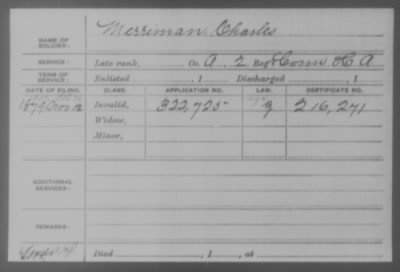 NAME OF SOLDIER: Merriman, Charles
SERVICE: Late rank, Co. A, 2 Reg't Conn H A
TERM OF SERVICE: Enlisted , 1 Discharged , 1
DATE OF FILING. CLASS. APPLICATION NO. LAW. CERTIFICATE NO.
1879 Nov 12 Invalid, 322,725 g 216,271
Widow,
Minor,
ADDITIONAL SERVICES:
REMARKS:
Died , 1 , at